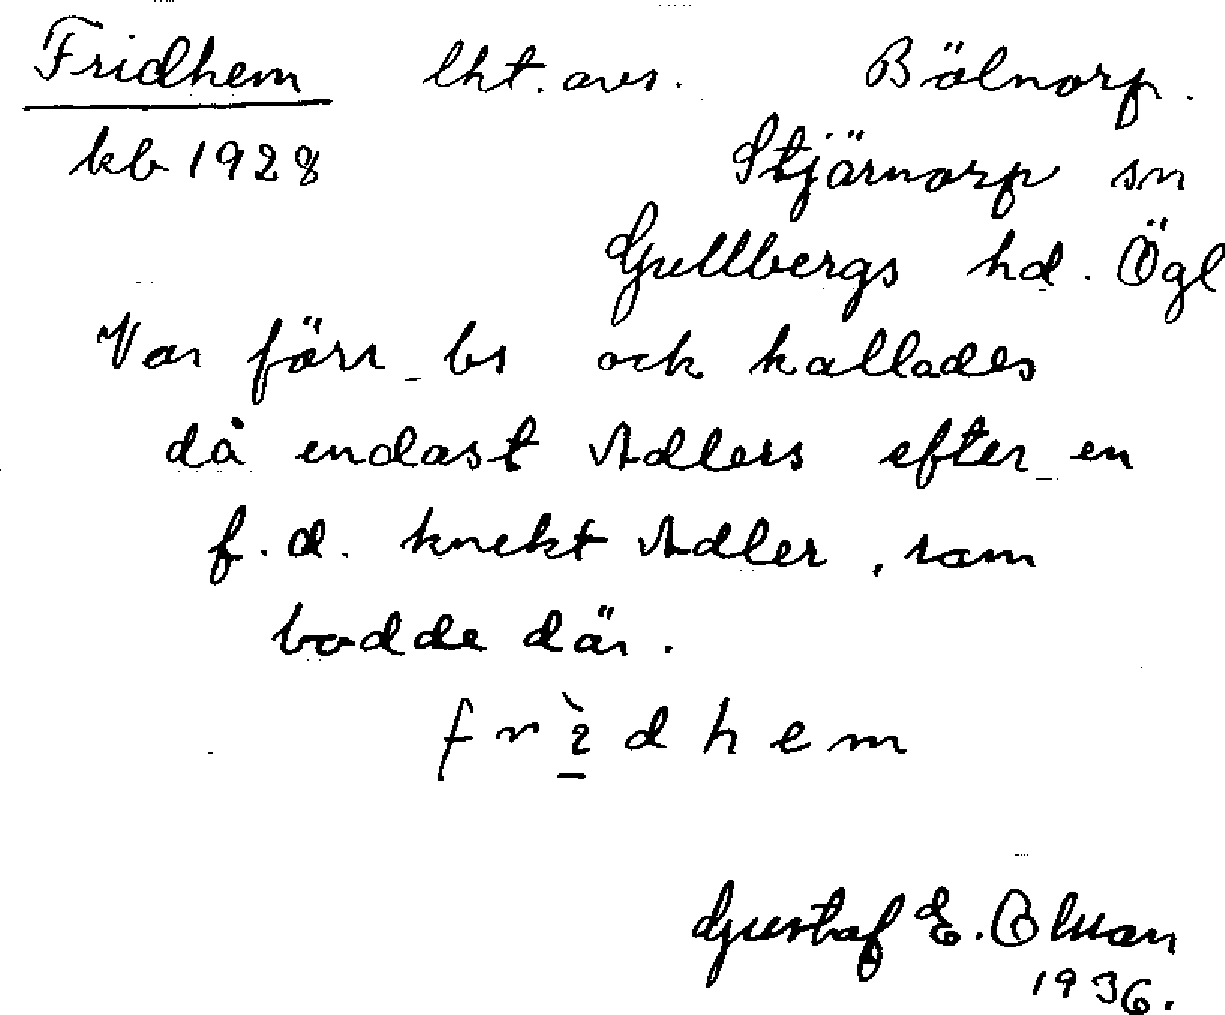 Fridhem lht. avs. Bölnorp.
kb 1928 Stjärnorp sn
Gullbergs hd. Ögl
Var förr bs och kallades
då endast Adlers efter en
f.d. knekt Adler, som
bodde där.
frìdhem
Gustaf E. Olsson
1936.